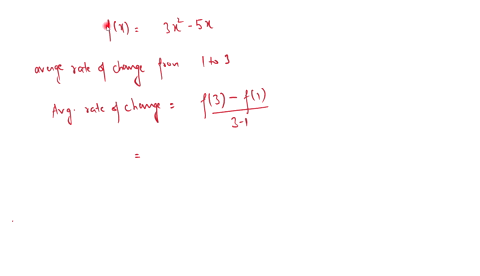 f(x) = 3x² - 5x
average rate of change from 1 to 3
Avg. rate of change = f(3) - f(1)
3-1
=